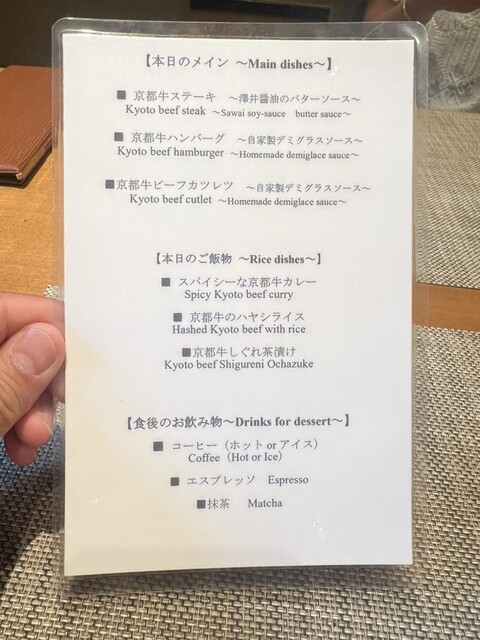 【本日のメイン ～Main dishes～】
■ 京都牛ステーキ ～澤井醤油のバターソース～
Kyoto beef steak ～Sawai soy-sauce butter sauce～
■ 京都牛ハンバーグ ～自家製デミグラスソース～
Kyoto beef hamburger ～Homemade demiglace sauce～
■京都牛ビーフカツレツ ～自家製デミグラスソース～
Kyoto beef cutlet ～Homemade demiglace sauce～
【本日のご飯物 ～Rice dishes～】
■ スパイシーな京都牛カレー
Spicy Kyoto beef curry
■ 京都牛のハヤシライス
Hashed Kyoto beef with rice
■京都牛しぐれ茶漬け
Kyoto beef Shigureni Ochazuke
【食後のお飲み物～Drinks for dessert～】
■ コーヒー（ホット or アイス）
Coffee（Hot or Ice）
■ エスプレッソ Espresso
■抹茶 Matcha